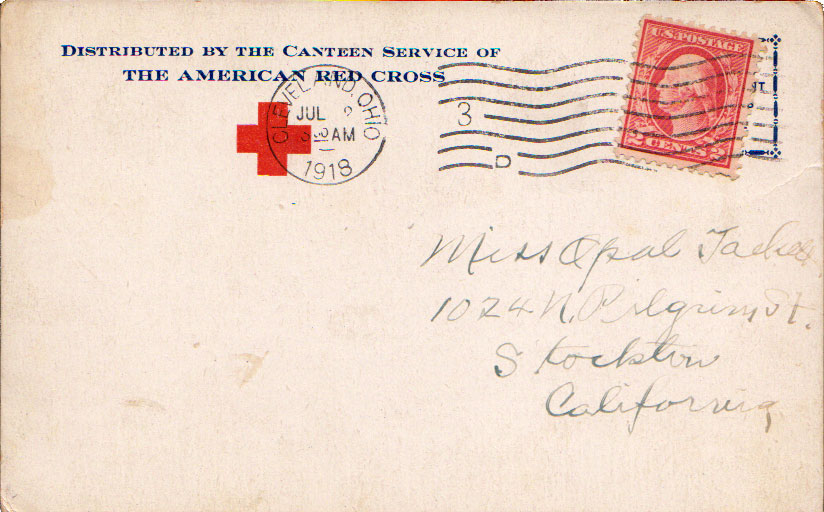 DISTRIBUTED BY THE CANTEEN SERVICE OF
THE AMERICAN RED CROSS
CLEVELAND, OHIO
JUL
AM
1918
3
D
U.S. POSTAGE
2 CENTS 2
Miss Opal
1024 N. Pilgrim St.
Stockton
California